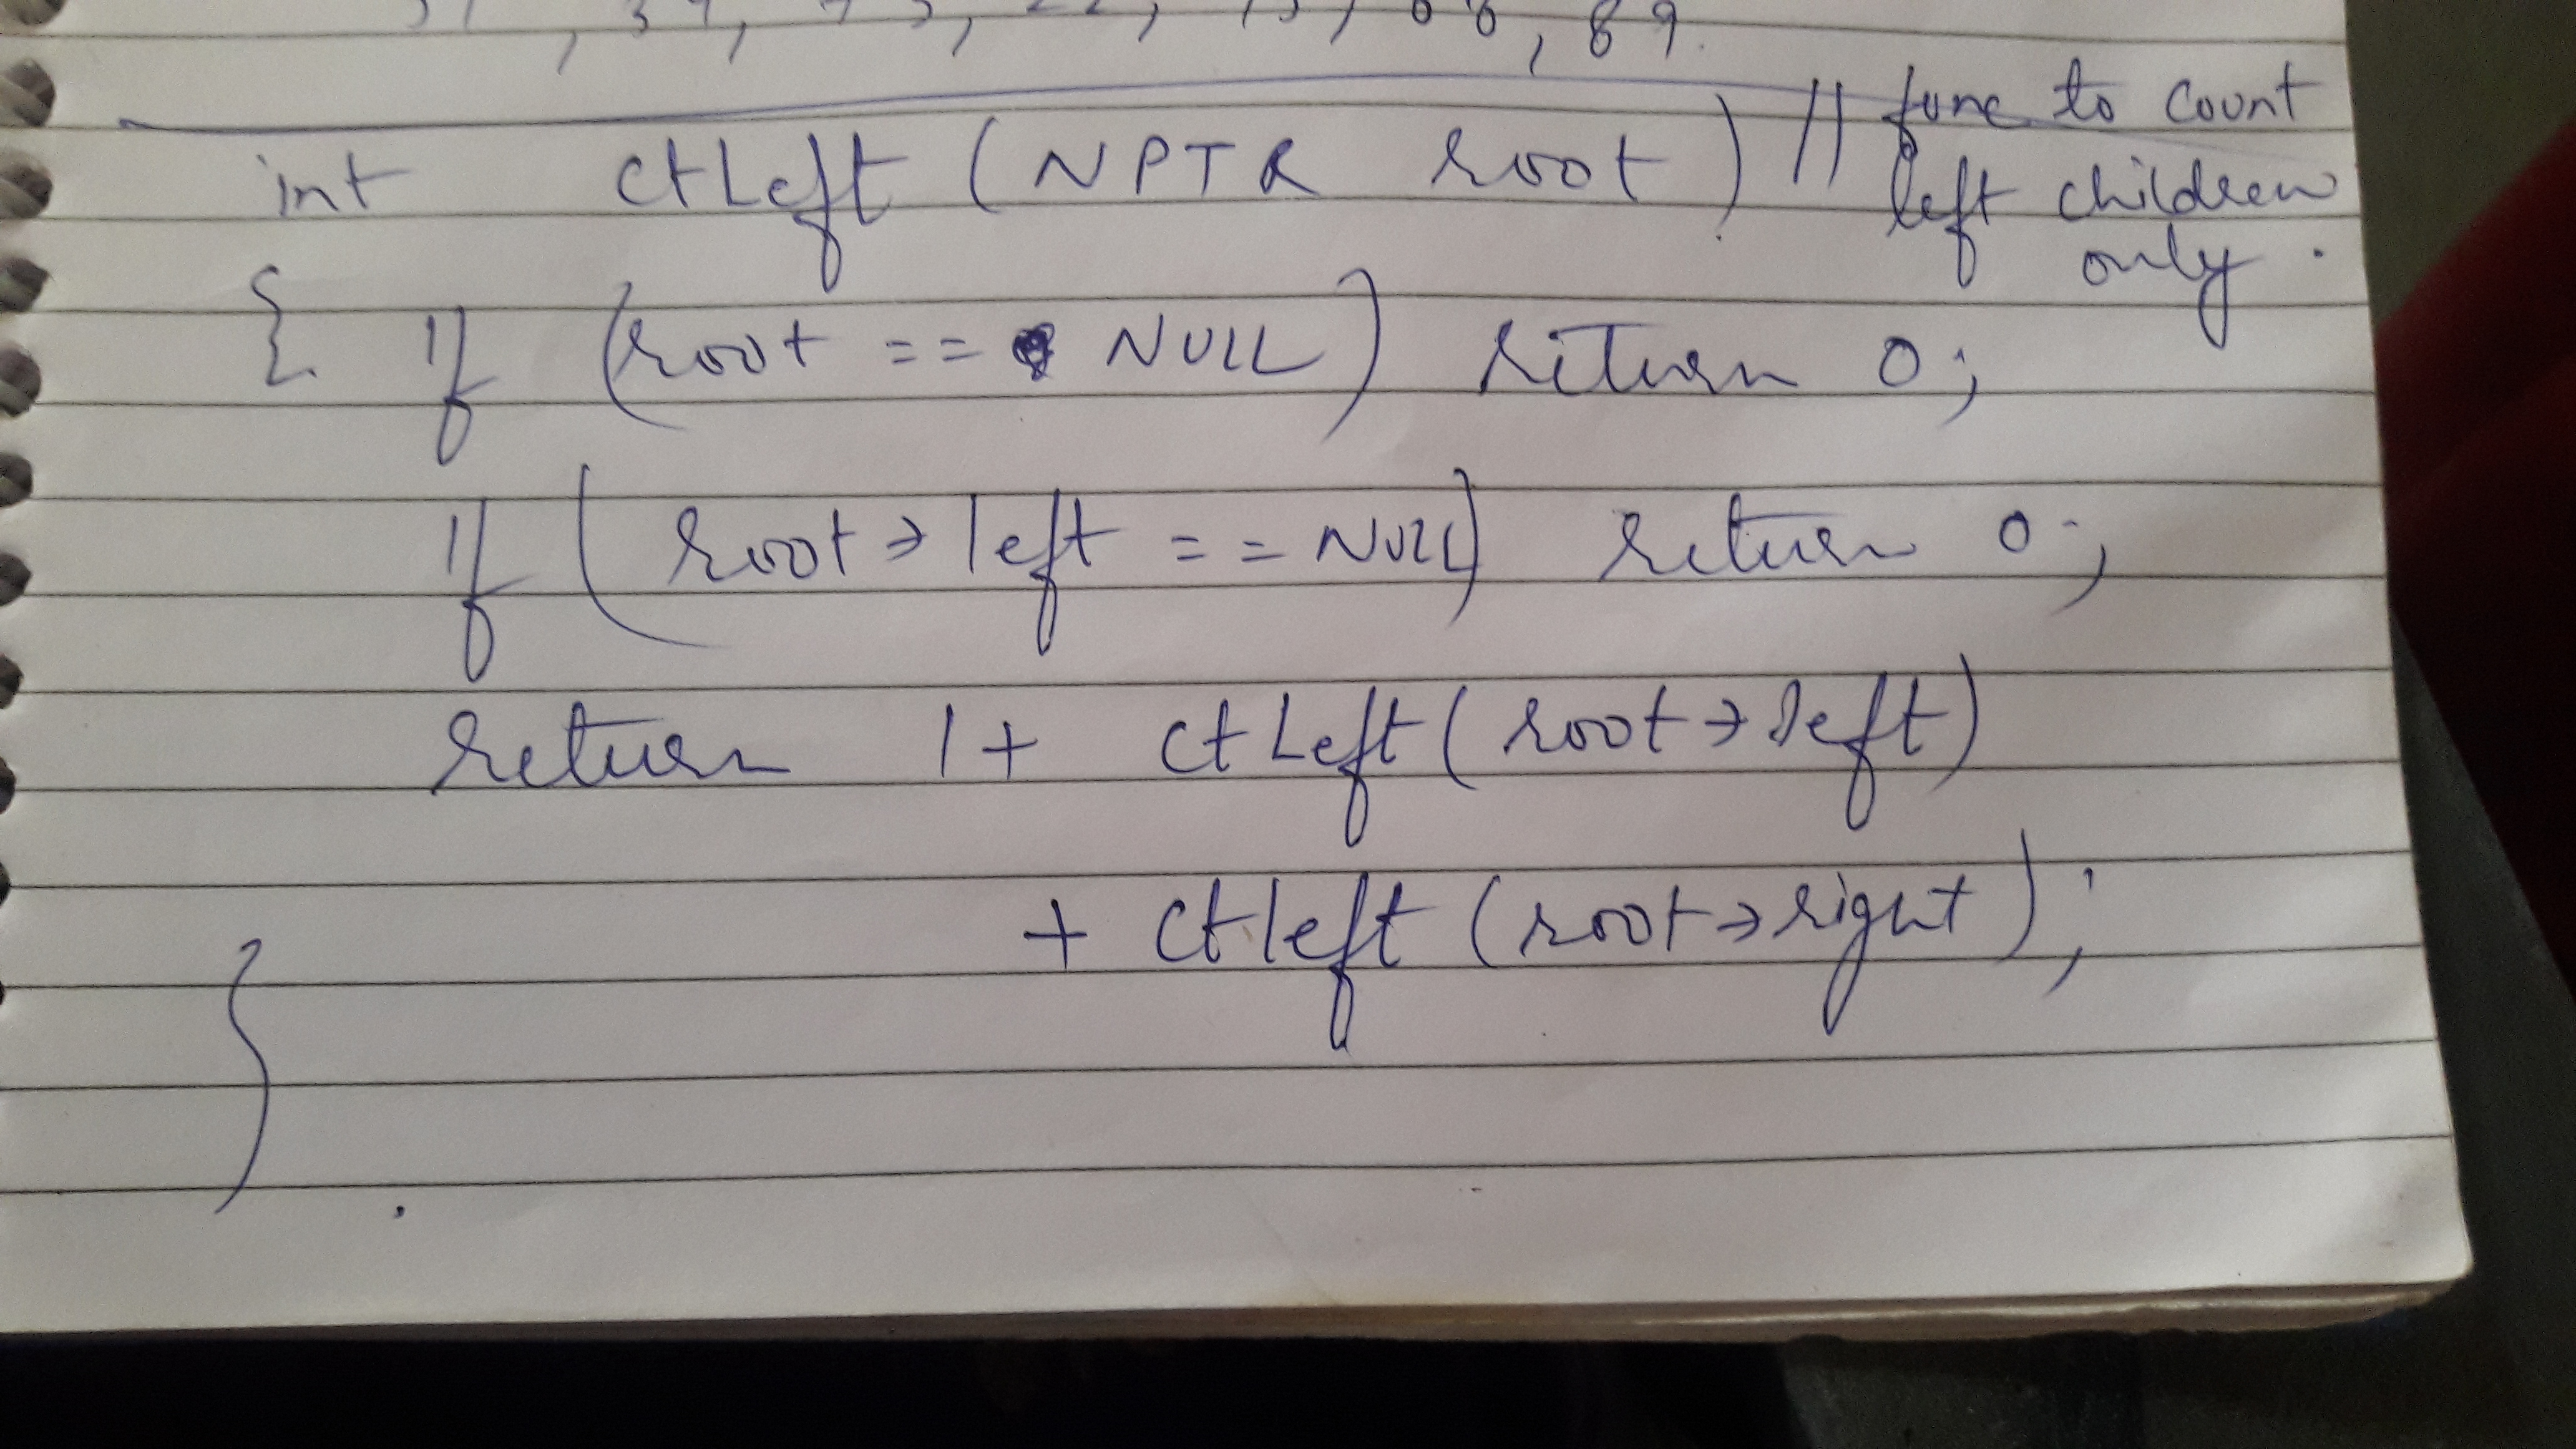 8, 89
int ctLeft (NPTR root) // func to count
left children
only.
{ if (root == NULL) return 0;
if (root → left == NULL) return 0;
return 1 + ctLeft (root → left)
+ ctleft (root → right);
}